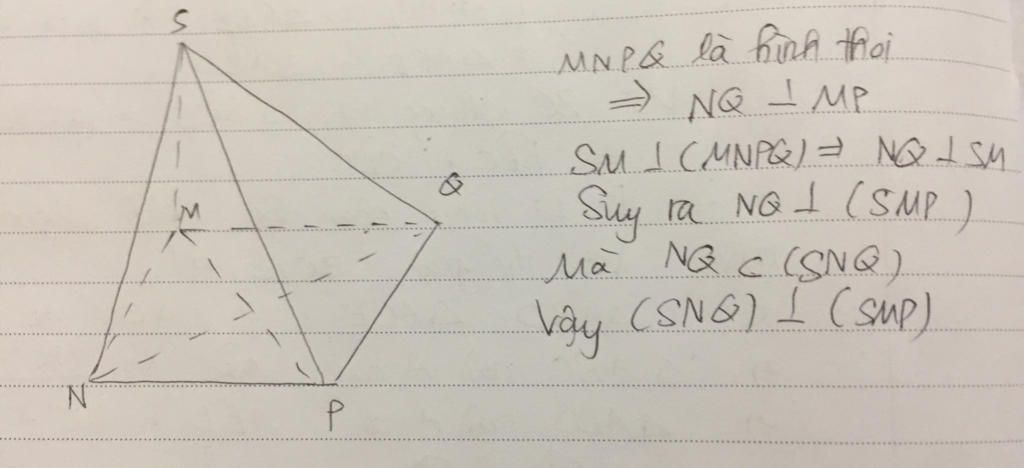 S
M
Q
N
P
MNPQ là hình thoi
⇒ NQ ⊥ MP
SM ⊥ (MNPQ) ⇒ NQ ⊥ SM
Suy ra NQ ⊥ (SMP)
Mà NQ ⊂ (SNQ)
Vậy (SNQ) ⊥ (SMP)